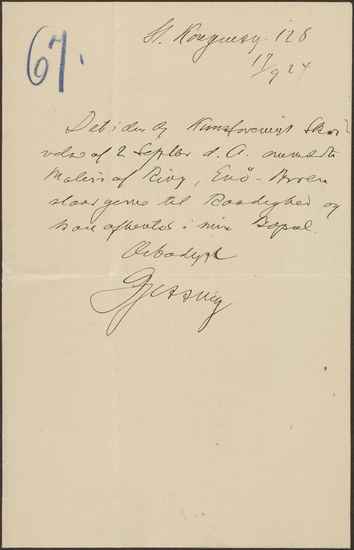 67.
St. Kongensg. 128
17/9 24
Det i den af Kunstforeningens Skri
velse af 2 Septbr d. A. omtalte
Maleri af Ring, Enø-Broen
staar gerne til Raadighed og
kan afhentes i min Bopæl.
Ærbødigst